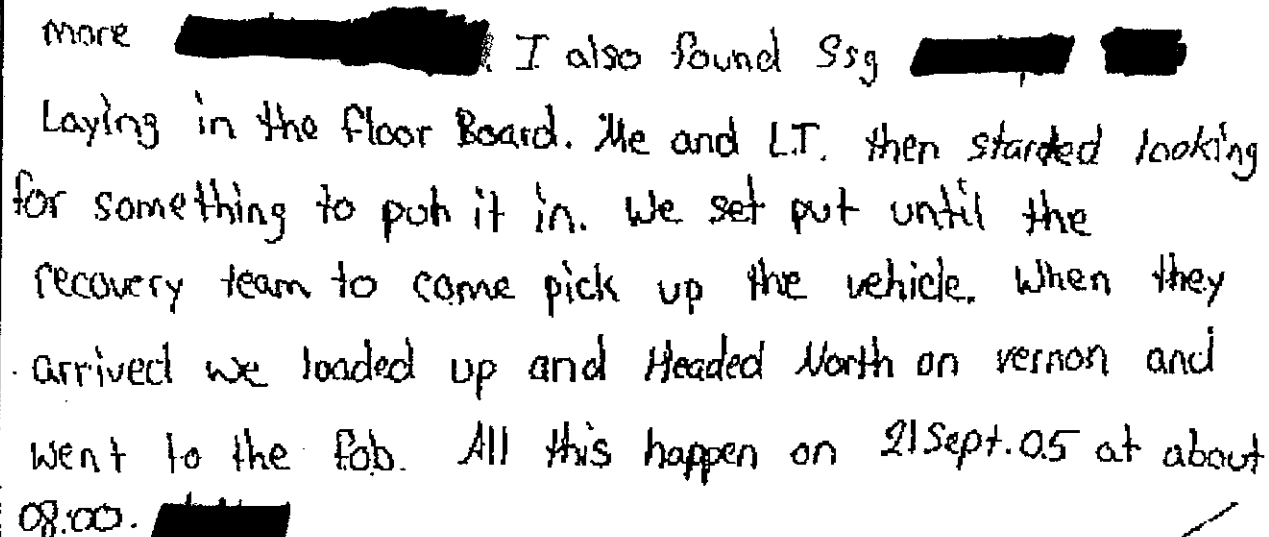 more I also found Ssg
Laying in the floor Board. Me and L.T. then starded looking
for something to puh it in. We set put until the
recovery team to come pick up the vehicle. When they
arrived we loaded up and Headed North on vernon and
went to the fob. All this happen on 21 Sept. 05 at about
08:00.